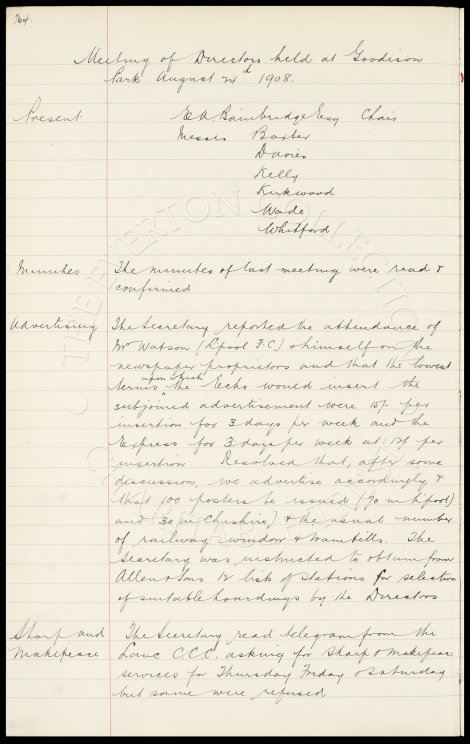 764.
Meeting of Directors held at Goodison
Park August 24th 1908.
Present
E.A. Bainbridge Esq Chair
Messrs Baxter
Davies
Kelly
Kirkwood
Wade
Whitford
Minutes
The minutes of last meeting were read &
confirmed
Advertising
The Secretary reported the attendance of
Mr Watson (Lpool F.C.) & himself on the
newspaper proprietors and that the lowest
terms upon which the Echo would insert the
subjoined advertisement were 15/- per
insertion for 3 days per week and the
Express for 3 days per week at 12/- per
insertion. Resolved that, after some
discussion, we advertise accordingly &
that 100 posters be issued (70 in Lpool)
and 30 (in Cheshire) & the usual number
of railway window & tram bills. The
Secretary was instructed to obtain from
Allen & Sons 12 lists of stations for selection
of suitable hoardings by the Directors
Sharp and
Makepeace
The Secretary read telegram from the
Lanc C.C.C. asking for Sharp & Makepeace
services for Thursday Friday & Saturday
but same were refused
© THE EVERTON COLLECTION